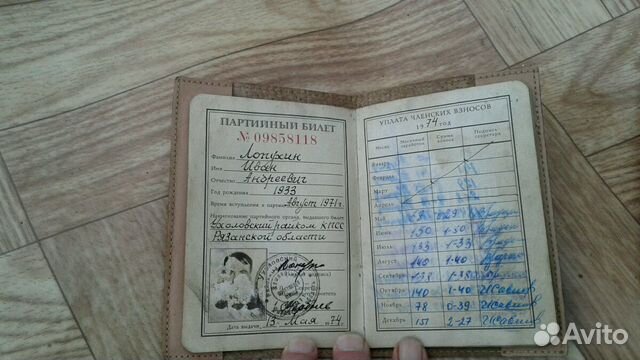 ПАРТИЙНЫЙ БИЛЕТ
№ 09858118
Фамилия Лопухин
Имя Иван
Отчество Андреевич
Год рождения 1933
Время вступления в партию Август 1971 г.
Наименование партийного органа, выдавшего билет
Ухоловский райком КПСС
Рязанской области
Дата выдачи 13 Мая 74
УПЛАТА ЧЛЕНСКИХ ВЗНОСОВ
1974 год
Месяц Месячный заработок Сумма взноса Подпись секретаря
Январь
Февраль
Март
Апрель
Май
Июнь 150 1-50
Июль 133 1-33
Август 140 1-40
Сентябрь 138 1-38
Октябрь 140 1-40
Ноябрь 78 0-39
Декабрь 151 2-27
Avito